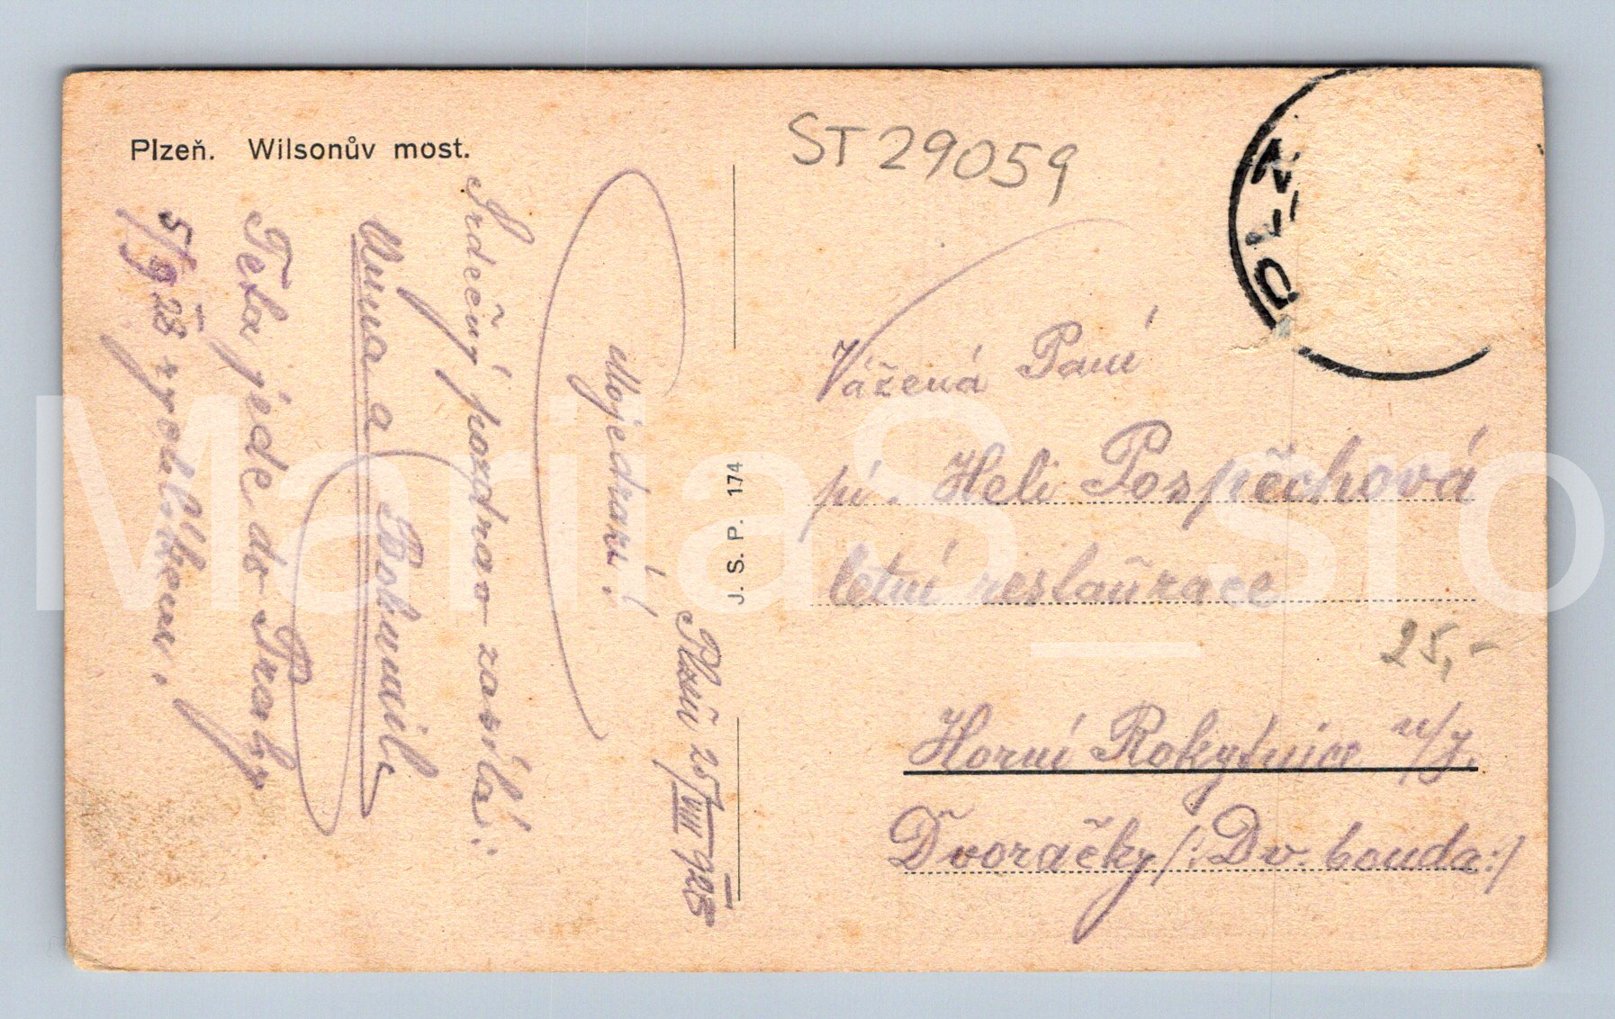 Plzeň. Wilsonův most.
ST 29059
PLZ
Plzeň 25/VIII 1925
Moje drazí!
Srdečný pozdrav zasílá:
Anna a Bohumil
Teta jede do Prahy
5/9 25
J. S. P. 174
Vážená Paní
pí. Heli Pospěchová
letní restaurace
25,-
Horní Rokytnice n/J.
Dvoračky /: Dv. bouda :/
MarijaS_sro